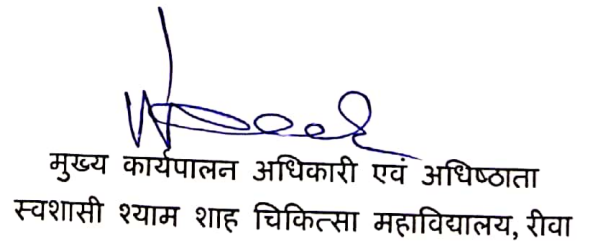 मुख्य कार्यपालन अधिकारी एवं अधिष्ठाता
स्वशासी श्याम शाह चिकित्सा महाविद्यालय, रीवा